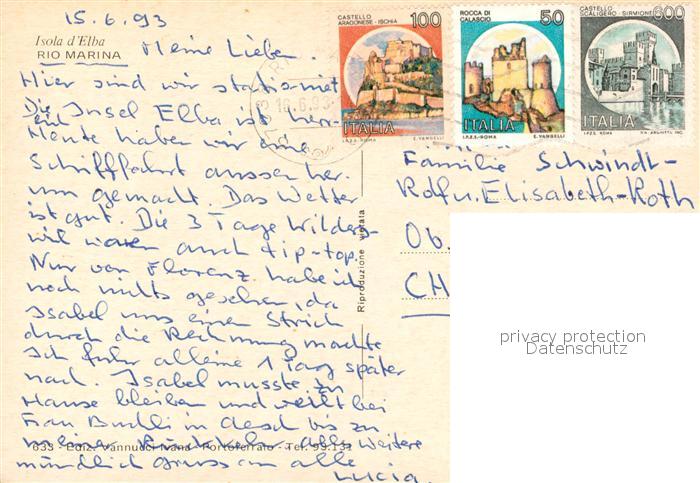 15.6.93
Isola d'Elba
RIO MARINA
Meine Lieben.
Hier sind wir stationiert
Die Insel Elba ist herr-
lich
Heute haben wir eine
Schifffahrt aussen her-
um gemacht. Das Wetter
ist gut. Die 3 Tage Wilders-
wil waren auch tip-top.
Nur von Florenz habe ich
noch nichts gesehen, da
Isabel uns einen Strich
durch die Rechnung machte
Ich fuhr alleine 1 Tag später
nach. Isabel musste zu
Hause bleiben und weilt bei
Frau in bis zu
meiner Rückkehr. Alles weitere
mündlich Gruss an alle
Lucia
633 - Ediz. Vannucci Ivana - Portoferraio - Tel. 93.132
Riproduzione vietata
CASTELLO
ARAGONESE - ISCHIA
100
ITALIA
I.P.Z.S. - ROMA E. VANGELLI
ROCCA DI
CALASCIO
50
ITALIA
I.P.Z.S. - ROMA E. VANGELLI
CASTELLO
SCALIGERO - SIRMIONE
600
ITALIA
I.P.Z.S. ROMA
16.6.93
Familie Schwindt-
Rolf u. Elisabeth-Roth
Ob.
CH
privacy protection
Datenschutz